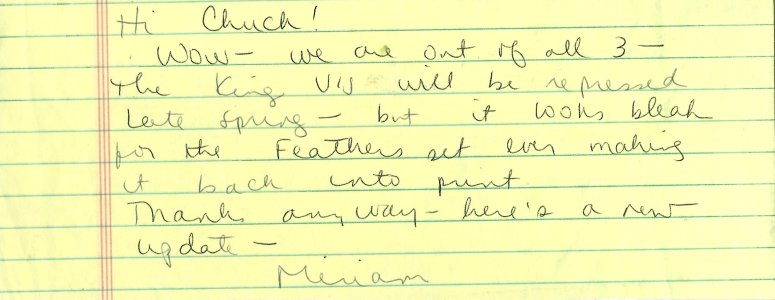 Hi Chuck!
Wow - we are out of all 3 -
the King V's will be repressed
late spring - but it looks bleak
for the Feathers set ever making
it back into print
Thanks anyway - here's a new
update -
Miriam